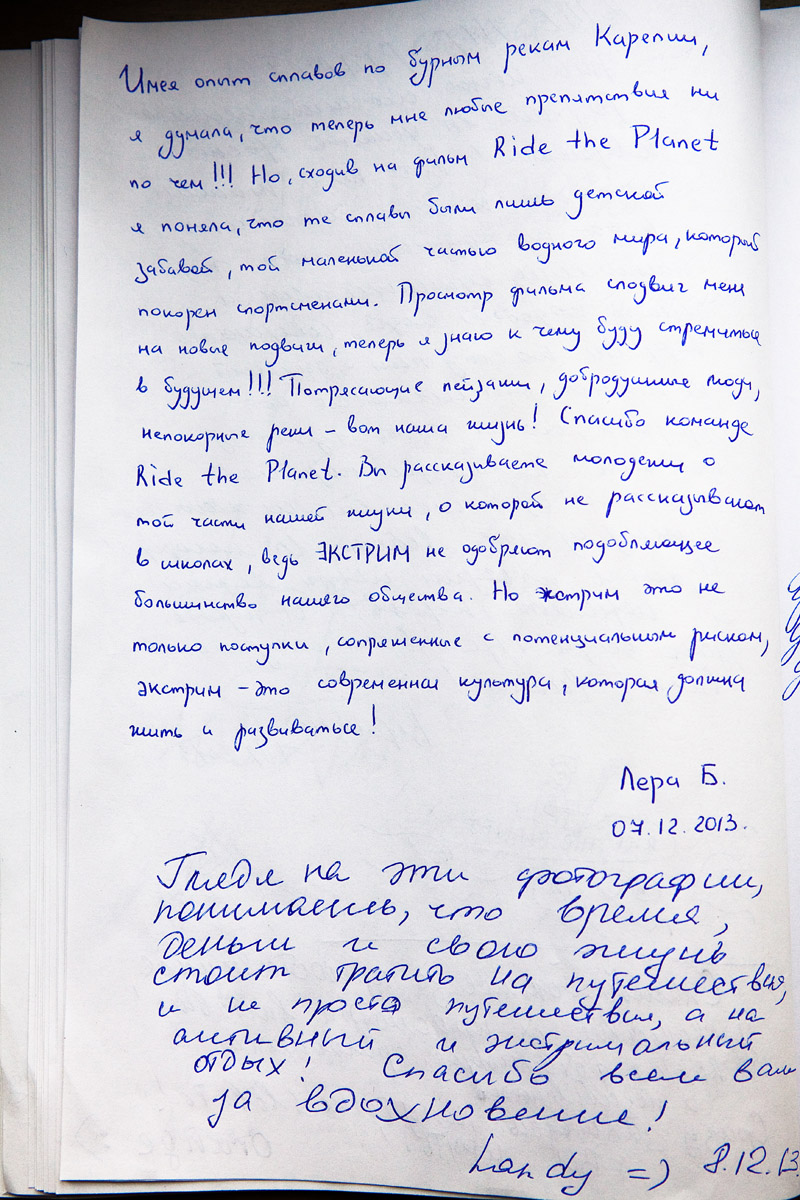 Имея опыт сплавов по бурным рекам Карелии,
я думала, что теперь мне любые препятствия ни
по чем!!! Но, сходив на фильм Ride the Planet
я поняла, что те сплавы были лишь детской
забавой, той маленькой частью водного мира, который
покорён спортсменами. Просмотр фильма сподвиг меня
на новые подвиги, теперь я знаю к чему буду стремиться
в будущем!!! Потрясающие пейзажи, добродушные люди,
непокорные реки – вот наша жизнь! Спасибо команде
Ride the Planet. Вы рассказываете молодежи о
той части нашей жизни, о которой не рассказывают
в школах, ведь ЭКСТРИМ не одобряют подобляющее
большинство нашего общества. Но экстрим это не
только поступки, сопряженные с потенциальным риском,
экстрим – это современная культура, которая должна
жить и развиваться!
Лера Б.
07.12.2013.
Глядя на эти фотографии,
понимаешь, что время,
деньги и свою жизнь
стоит тратить на путешествия,
и не просто путешествия, а на
активный и экстримальный
отдых! Спасибо всем вам
за вдохновение!
Landy =) 8.12.13